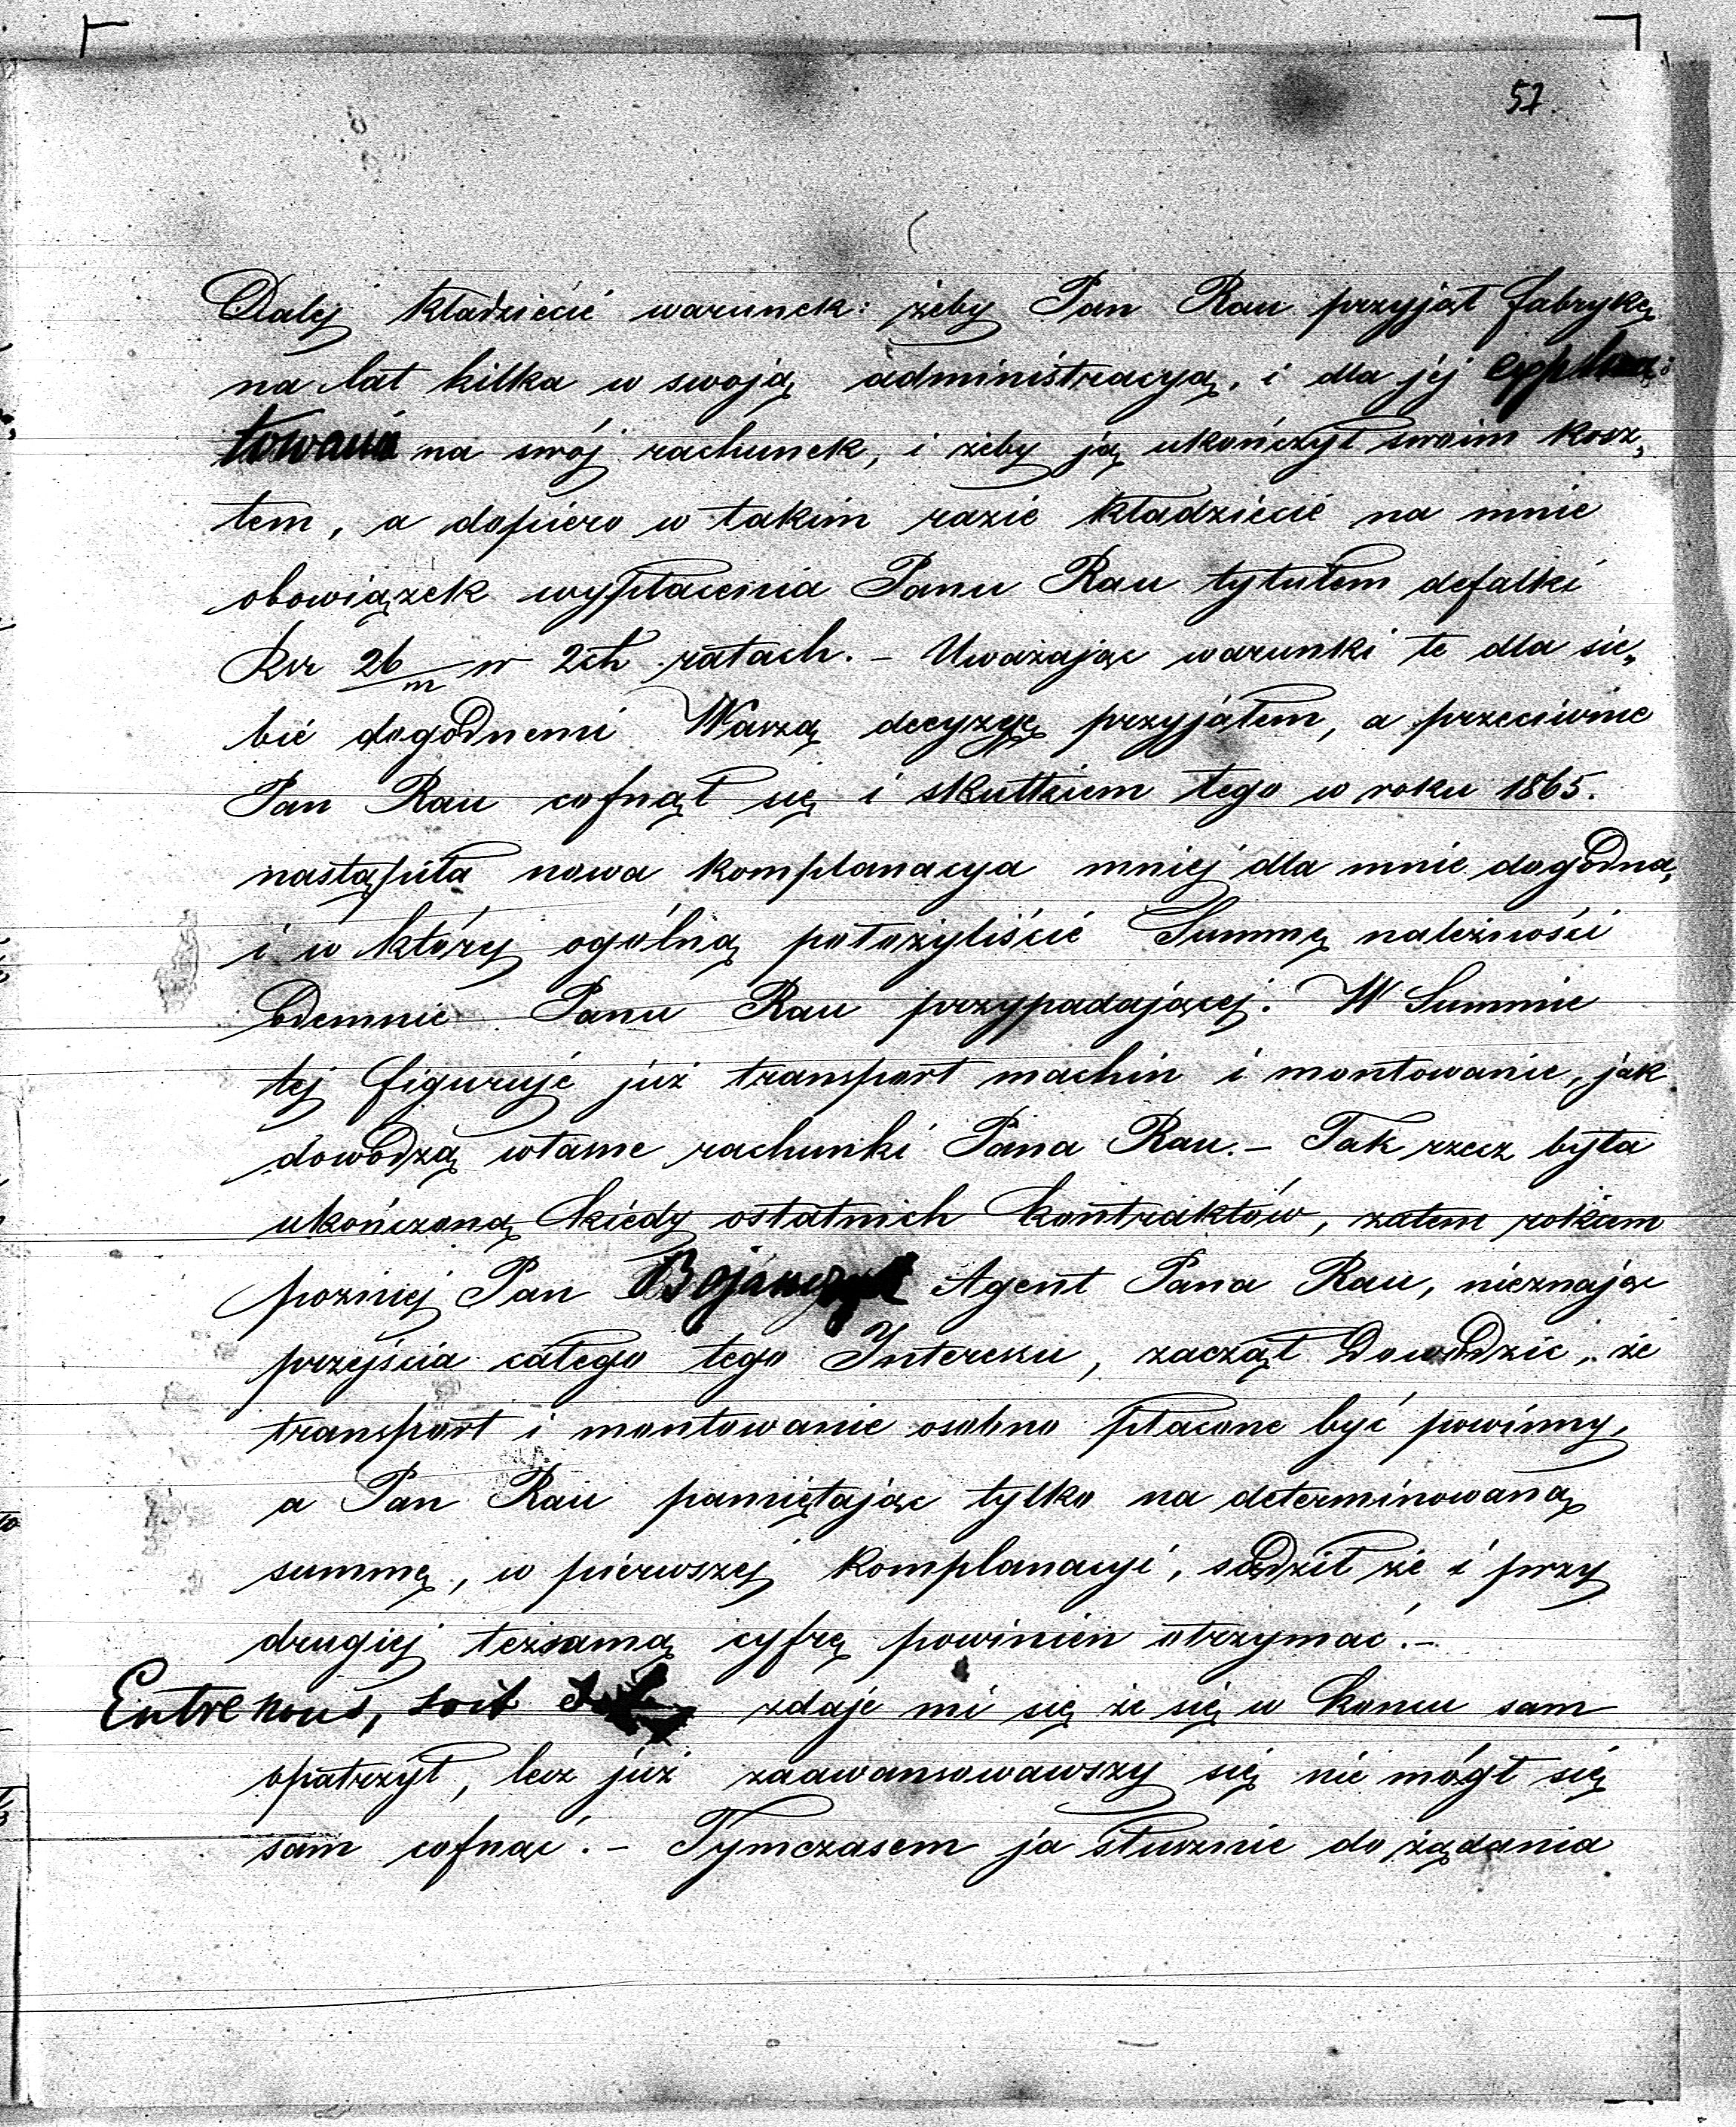 57.
Dalej kładziecie warunek: żeby Pan Rau przyjął fabrykę
na lat kilka w swoją administracyą, i dla jej exploa:
towania na swój rachunek, i żeby ją ukończył swoim kosz„
tem, a dopiero w takim razie kładziecie na mnie
obowiązek wypłacenia Panu Rau tytułem defalki
Rsr 26/m w 2ch ratach. – Uważając warunki te dla sie„
bie dogodnemi Waszą decyzyę przyjąłem, a przeciwnie
Pan Rau cofnął się i skutkiem tego w roku 1865.
nastąpiła nowa komplanacya mniej dla mnie dogodna,
i w której ogólną położyliście Summę należności
odemnie Panu Rau przypadającej. W Summie
tej figuruje już transport machin i montowanie, jak
dowodzą własne rachunki Pana Rau. – Tak rzecz była
ukończoną kiedy ostatnich kontraktów, zatem rokiem
pozniej Pan Agent Pana Rau, nieznając
przejścia całego tego Interesu, zaczął dowodzić, że
transport i montowanie osobno płacone być powinny,
a Pan Rau pamiętając tylko na determinowaną
summę, w pierwszej komplanacyi, sądził że i przy
drugiej tezsamą cyfrę powinien otrzymać. –
Entre nous, soit zdaje mi się że się w koncu sam
opatrzył, lecz już zaawansowawszy się nie mógł się
sam cofnąć. – Tymczasem ja słusznie do żądania